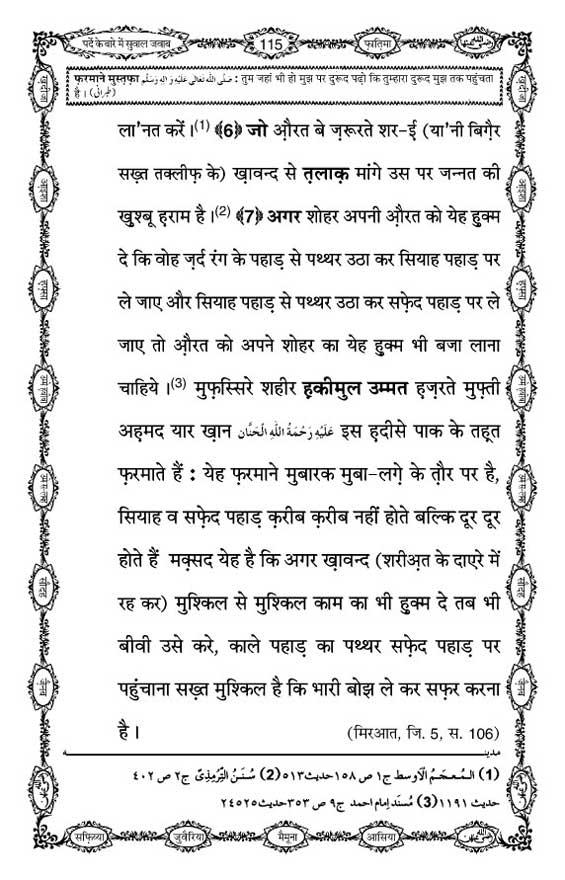 पर्दे के बारे में सुवाल जवाब
115
फ़ातिमा
फ़रमाने मुस्तफ़ा صَلَّى اللهُ تَعَالٰى عَلَيْهِ وَاٰلِهٖ وَسَلَّم : तुम जहां भी हो मुझ पर दुरूद पढ़ो कि तुम्हारा दुरूद मुझ तक पहुंचता
है । (طبرانی)
ला'नत करें ।(1) ﴾6﴿ जो औ़रत बे ज़रूरते शर-ई (या'नी बिग़ैर
सख़्त तक्लीफ़ के) ख़ावन्द से त़लाक़ मांगे उस पर जन्नत की
ख़ुश्बू ह़राम है ।(2) ﴾7﴿ अगर शोहर अपनी औ़रत को येह हुक्म
दे कि वोह ज़र्द रंग के पहाड़ से पथ्थर उठा कर सियाह पहाड़ पर
ले जाए और सियाह पहाड़ से पथ्थर उठा कर सफ़ेद पहाड़ पर ले
जाए तो औ़रत को अपने शोहर का येह हुक्म भी बजा लाना
चाहिये ।(3) मुफ़स्सिरे शहीर ह़कीमुल उम्मत ह़ज़रते मुफ़्ती
अह़मद यार ख़ान عَلَيْهِ رَحْمَةُ اللهِ الْحَنَّان इस ह़दीसे पाक के तह़त
फ़रमाते हैं : येह फ़रमाने मुबारक मुबा-लगे़ के त़ौर पर है,
सियाह व सफ़ेद पहाड़ क़रीब क़रीब नहीं होते बल्कि दूर दूर
होते हैं मक़्सद येह है कि अगर ख़ावन्द (शरीअ़त के दाएरे में
रह कर) मुश्किल से मुश्किल काम का भी हुक्म दे तब भी
बीवी उसे करे, काले पहाड़ का पथ्थर सफ़ेद पहाड़ पर
पहुंचाना सख़्त मुश्किल है कि भारी बोझ ले कर सफ़र करना
है ।
(मिरआत, जि. 5, स. 106)
مدينه
(1) المُعجَمُ الْاَوسط ج۱ ص ۱۵۸ حدیث ۵۱۳ (2) سُنَنُ التِّرمِذِیّ ج۲ ص ۴۰۲
حدیث ۱۱۹۱ (3) مُسنَد امام احمد ج۹ ص ۳۵۳ حدیث ۲۴۵۲۵
सफ़िय्या
जुवैरिया
मैमूना
आसिया